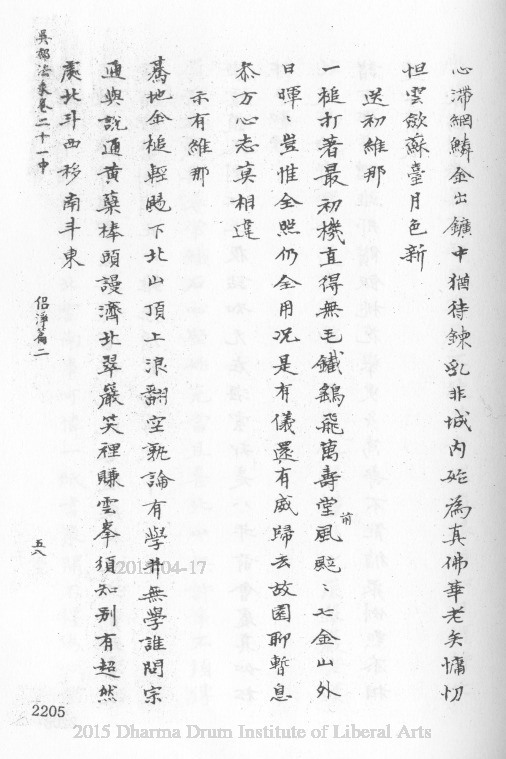 心滯網鱗金出鑛中猶待鍊乳非城內始為真佛華老矣慵切
怛雲斂蘇臺月色新
送初維那
一槌打著最初機直得無毛鐵鷂飛萬壽堂前風颭颭七金山外
日暉暉豈惟全照仍全用况是有儀還有威歸去故園聊暫息
叅方心志莫相違
示有維那
驀地金槌輕颺下北山頂上浪翻空孰論有學并無學誰問宗
通與說通黃蘗棒頭謾濟北翠巖笑裡賺雲峯須知別有超然
處北斗西移南斗東
吳都法乘卷二十一中
侶淨篇二
五八
2205
2015-04-17
2015 Dharma Drum Institute of Liberal Arts